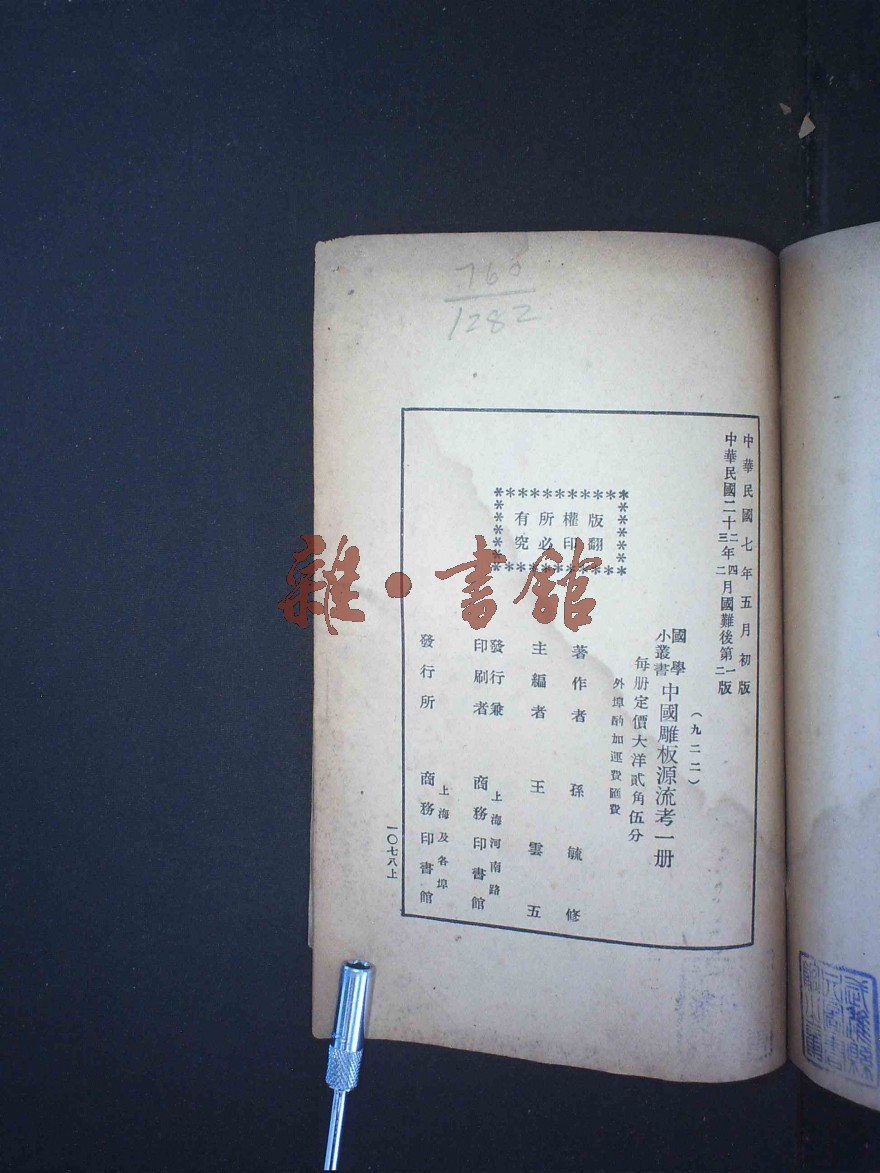 1282
中華民國七年五月初版
中華民國二十二三年四二月國難後第一二版
(九二二)
國學小叢書 中國雕板源流考一册
每册定價大洋貳角伍分
外埠酌加運費匯費
版權所有
翻印必究
著作者 孫毓修
主編者 王雲五
發行兼印刷者 上海河南路 商務印書館
發行所 上海及各埠 商務印書館
一〇七八上
雜·書館